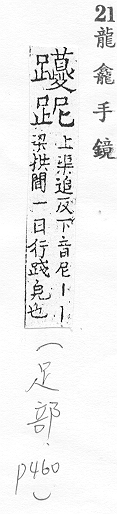 21龍龕手鏡
上渠追反下音尼丨丨
梁拱間一日行䟕皃也
(足部.
p460)